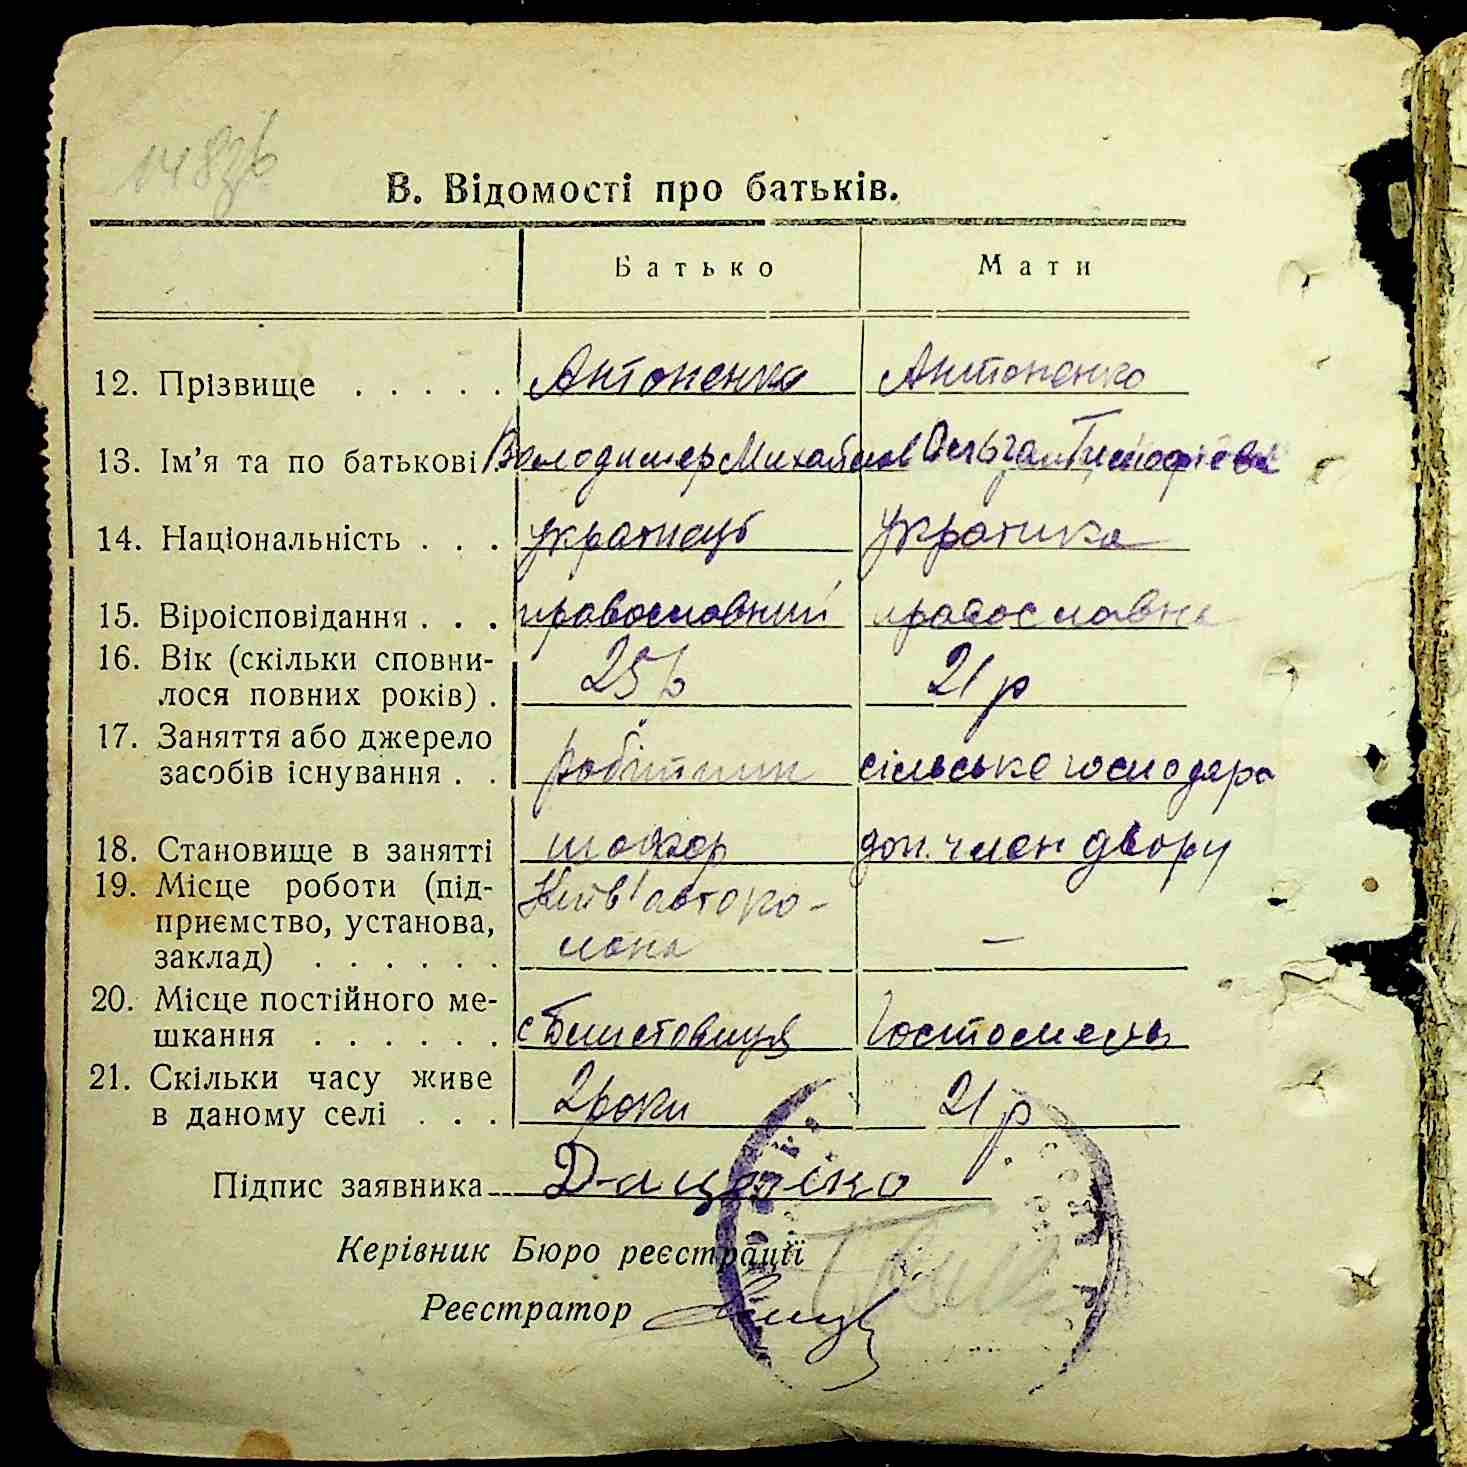 В. Відомості про батьків.
Батько Мати
12. Прізвище . . . . . Антоненко Антоненко
13. Ім'я та по батькові Володимир Михайлов Ольга Тимофієва
14. Національність . . . українець українка
15. Віроісповідання . . . православний православна
16. Вік (скільки сповни-
лося повних років) . 25 р 21 р
17. Заняття або джерело
засобів існування . . робітник сільське господарс
18. Становище в занятті шофер доп. член двору
19. Місце роботи (під- Київ автоко-
приємство, установа,
заклад) . . . . . . лона –
20. Місце постійного ме-
шкання . . . . . . с Блиставиця Гостомель
21. Скільки часу живе
в даному селі . . . 2 роки 21 р
Підпис заявника
Керівник Бюро реєстрації
Реєстратор